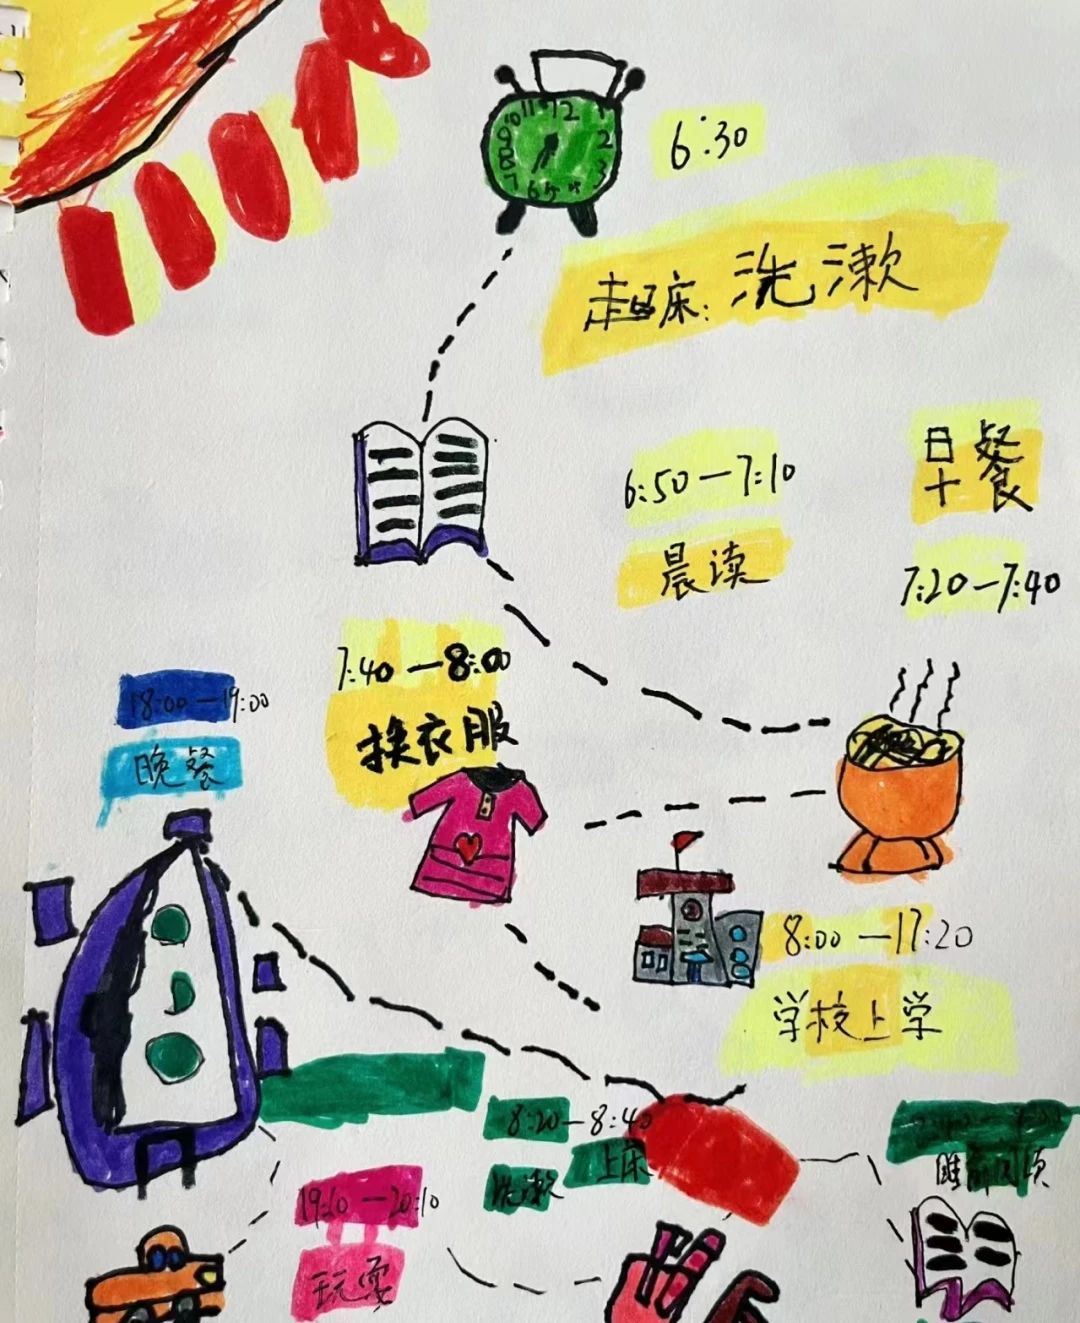 6:30
起床:洗漱
6:50—7:10
晨读
早餐
7:20—7:40
7:40—8:00
换衣服
18:00—19:00
晚餐
8:00—17:20
学校上学
8:20—8:40
洗漱 上床
睡前阅读
19:10—20:10
玩耍